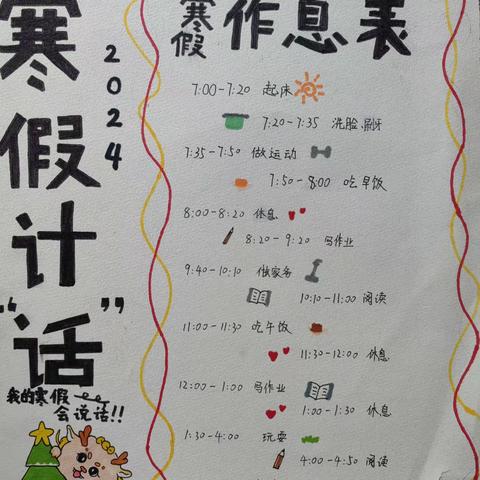 寒假计“话”
2024
我的寒假
会说话!!
寒假作息表
7:00-7:20 起床
7:20-7:35 洗脸、刷牙
7:35-7:50 做运动
7:50-8:00 吃早饭
8:00-8:20 休息
8:20-9:20 写作业
9:40-10:10 做家务
10:10-11:00 阅读
11:00-11:30 吃午饭
11:30-12:00 休息
12:00-1:00 写作业
1:00-1:30 休息
1:30-4:00 玩耍
4:00-4:50 阅读